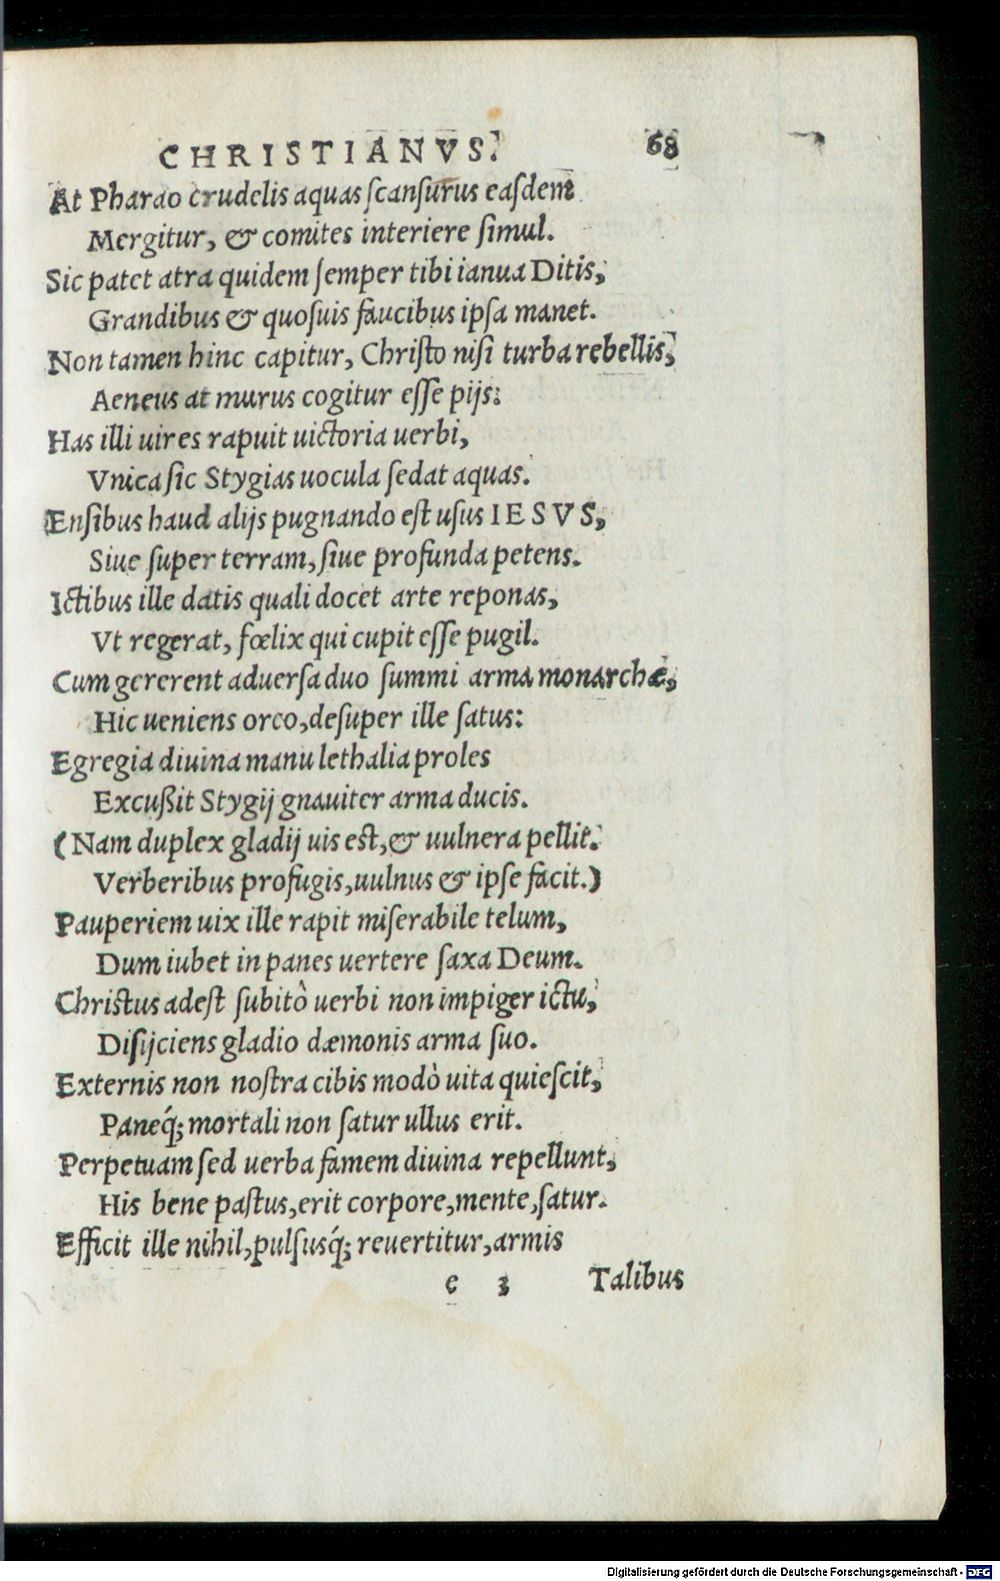 CHRISTIANVS. 68
At Pharao crudelis aquas ſcanſurus eaſdem
Mergitur, & comites interiere ſimul.
Sic patet atra quidem ſemper tibi ianua Ditis,
Grandibus & quoſuis faucibus ipſa manet.
Non tamen hinc capitur, Chriſto niſi turba rebellis,
Aeneus at murus cogitur eſſe pijs:
Has illi uires rapuit uictoria uerbi,
Vnica ſic Stygias uocula ſedat aquas.
Enſibus haud alijs pugnando eſt uſus IESVS,
Siue ſuper terram, ſiue profunda petens.
Ictibus ille datis quali docet arte reponas,
Vt regerat, fœlix qui cupit eſſe pugil.
Cum gererent aduerſa duo ſummi arma monarchæ,
Hic ueniens orco, deſuper ille ſatus:
Egregia diuina manu lethalia proles
Excußit Stygij gnauiter arma ducis.
(Nam duplex gladij uis eſt, & uulnera pellit.
Verberibus profugis, uulnus & ipſe facit.)
Pauperiem uix ille rapit miſerabile telum,
Dum iubet in panes uertere ſaxa Deum.
Chriſtus adeſt ſubitò uerbi non impiger ictu,
Diſijciens gladio dæmonis arma ſuo.
Externis non noſtra cibis modò uita quieſcit,
Paneq́; mortali non ſatur ullus erit.
Perpetuam ſed uerba famem diuina repellunt,
His bene paſtus, erit corpore, mente, ſatur.
Efficit ille nihil, pulſusq́; reuertitur, armis
e 3 Talibus
Digitalisierung gefördert durch die Deutsche Forschungsgemeinschaft - DFG